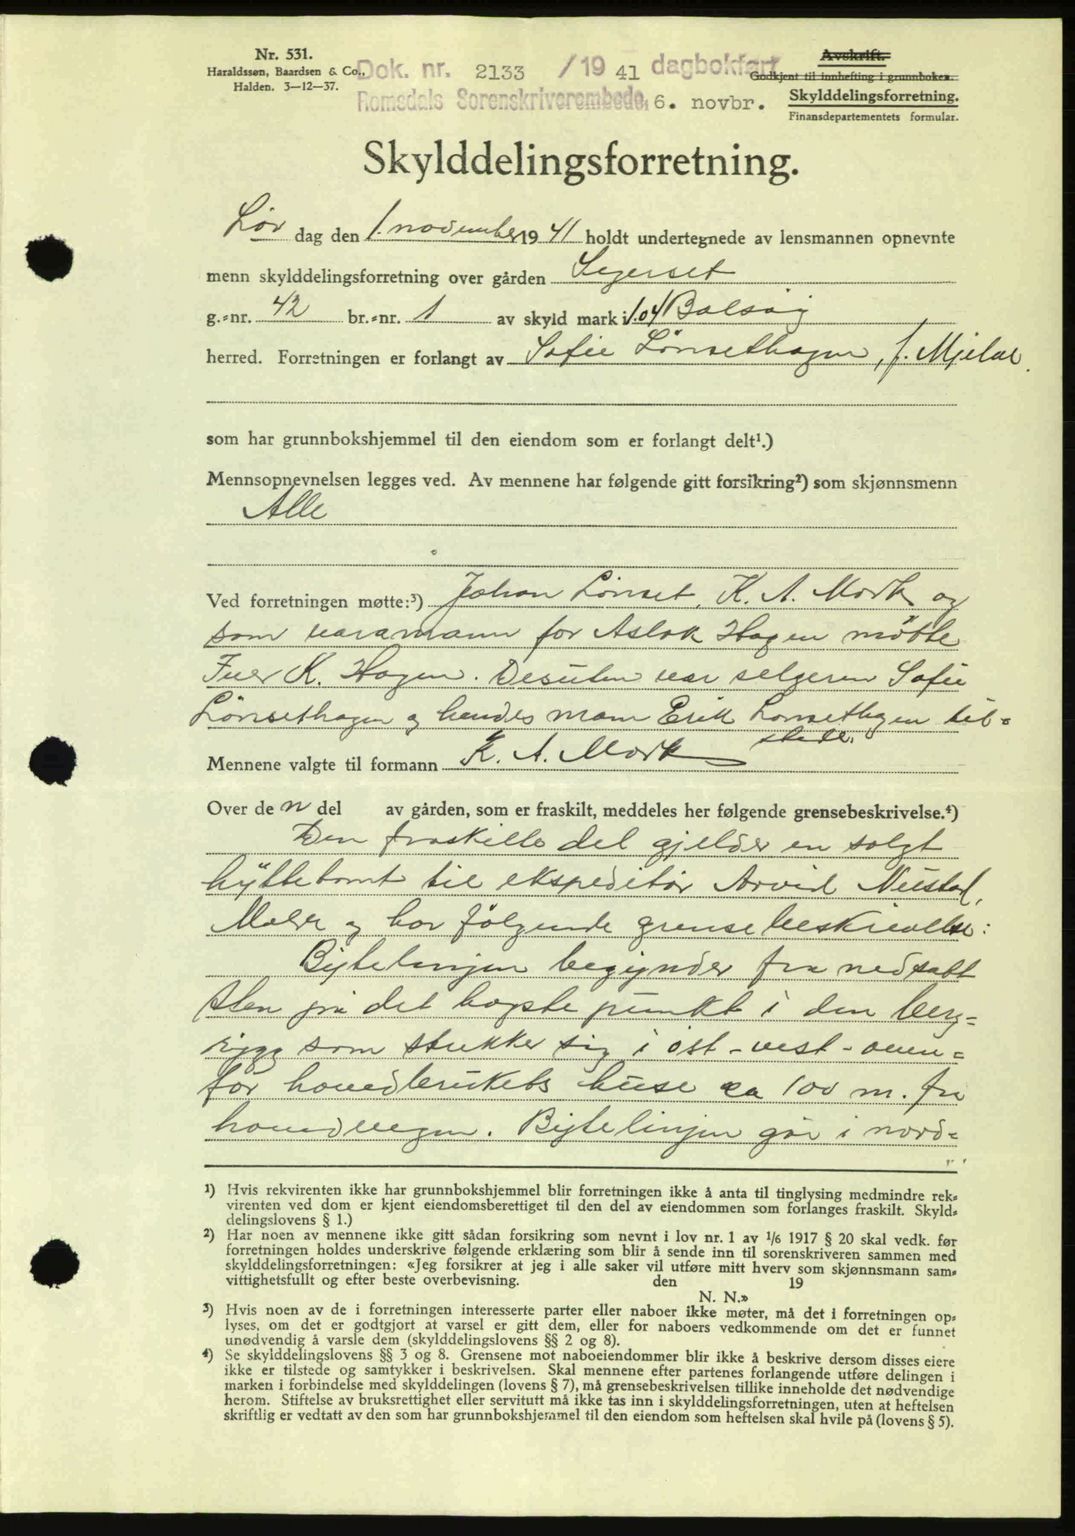 Nr. 531.
Haraldssøn, Baardsen & Co.,
Halden. 3—12—37.
Dok. nr. 2133 /19 41 dagbokført
Romsdals Sorenskriverembede, 6. novbr.
Avskrift.
Godkjent til innhefting i grunnboken.
Skylddelingsforretning.
Finansdepartementets formular.
Skylddelingsforretning.
Lør dag den 1. november 19 41 holdt undertegnede av lensmannen opnevnte
menn skylddelingsforretning over gården Segerset
g.=nr. 42 br.=nr. 1 av skyld mark 1.04 i Bolsøy
herred. Forretningen er forlangt av Sofie Lønsethagen, f. Mjelve.
som har grunnbokshjemmel til den eiendom som er forlangt delt¹.)
Mennsopnevnelsen legges ved. Av mennene har følgende gitt forsikring²) som skjønnsmenn
Alle
Ved forretningen møtte:³) Johan Lönset, K. A. Mork og
som varamann for Aslak Hagen møtte
Iver K. Hagen. Desuten var selgeren Sofie
Lønsethagen og hendes mann Erik Lønsethagen til=
stede.
Mennene valgte til formann K. A. Mork
Over de n del av gården, som er fraskilt, meddeles her følgende grensebeskrivelse.⁴)
Den fraskilte del gjelder en solgt
hyttetomt til ekspeditör Arvid Neustad,
Molde og har følgende grensebeskrivelse:
Bytelinjen begynder fra nedsatt
sten på det høgste punkt i den berg=
rygg som strekker sig i öst-vest-oven=
for hovedbrukets huse ca 100 m. fra
hovedvegen. Bytelinjen går i nord=
¹) Hvis rekvirenten ikke har grunnbokshjemmel blir forretningen ikke å anta til tinglysing medmindre rek=
virenten ved dom er kjent eiendomsberettiget til den del av eiendommen som forlanges fraskilt. Skyld=
delingslovens § 1.)
²) Har noen av mennene ikke gitt sådan forsikring som nevnt i lov nr. 1 av 1/6 1917 § 20 skal vedk. før
forretningen holdes underskrive følgende erklæring som blir å sende inn til sorenskriveren sammen med
skylddelingsforretningen: «Jeg forsikrer at jeg i alle saker vil utføre mitt hverv som skjønnsmann sam=
vittighetsfullt og efter beste overbevisning. den 19
N. N.»
³) Hvis noen av de i forretningen interesserte parter eller naboer ikke møter, må det i forretningen op=
lyses, om det er godtgjort at varsel er gitt dem, eller for naboers vedkommende om det er funnet
unødvendig å varsle dem (skylddelingslovens §§ 2 og 8).
⁴) Se skylddelingslovens §§ 3 og 8. Grensene mot naboeiendommer blir ikke å beskrive dersom disses eiere
ikke er tilstede og samtykker i beskrivelsen. Skal mennene efter partenes forlangende utføre delingen i
marken i forbindelse med skylddelingen (lovens § 7), må grensebeskrivelsen tillike inneholde det nødvendige
herom. Stiftelse av bruksrettighet eller servitutt må ikke tas inn i skylddelingsforretningen, uten at heftelsen
skriftlig er vedtatt av den som har grunnbokshjemmel til den eiendom som heftelsen skal hvile på (lovens § 5).